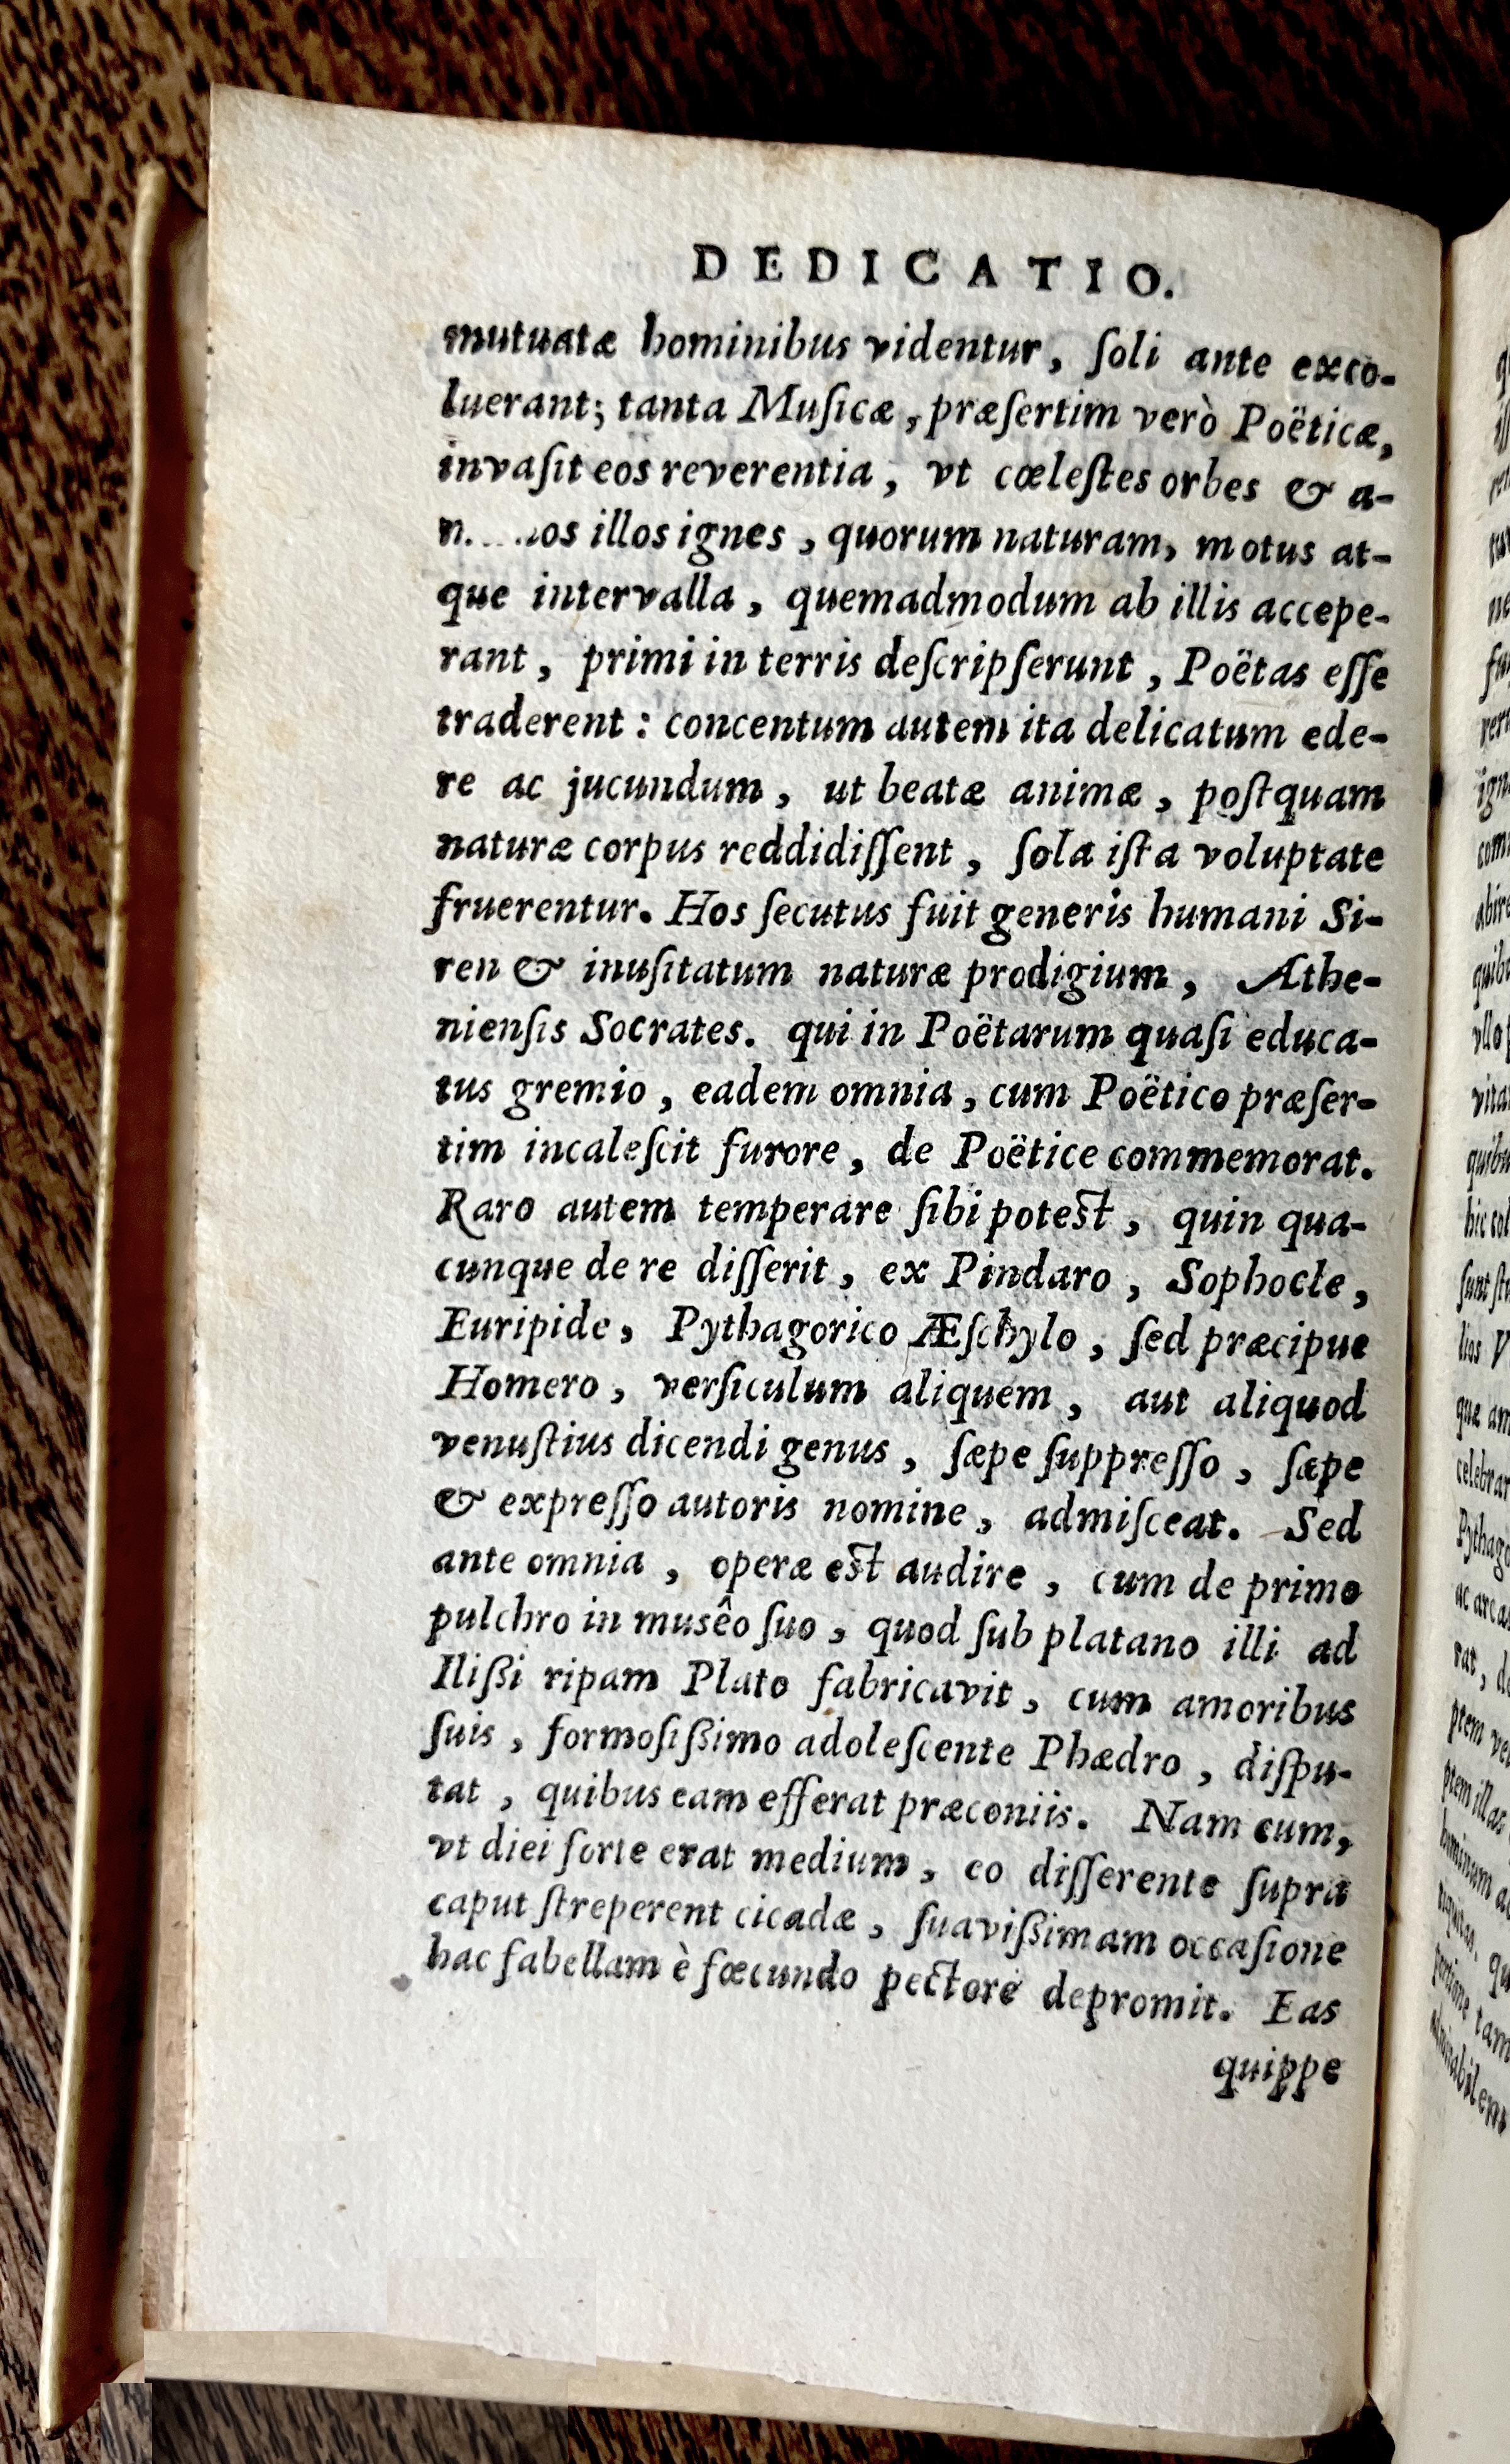 DEDICATIO.
mutuatæ hominibus videntur, ſoli ante exco-
luerant; tanta Muſicæ, præſertim verò Poëticæ,
invaſit eos reverentia, vt cœleſtes orbes & a-
illos ignes, quorum naturam, motus at-
que intervalla, quemadmodum ab illis accepe-
rant, primi in terris deſcripſerunt, Poëtas eſſe
traderent: concentum autem ita delicatum ede-
re ac jucundum, ut beatæ animæ, poſtquam
naturæ corpus reddidiſſent, ſola iſta voluptate
fruerentur. Hos ſecutus fuit generis humani Si-
ren & inuſitatum naturæ prodigium, Athe-
nienſis Socrates. qui in Poëtarum quaſi educa-
tus gremio, eadem omnia, cum Poëtico præſer-
tim incaleſcit furore, de Poëtice commemorat.
Raro autem temperare ſibi poteſt, quin qua-
cunque de re diſſerit, ex Pindaro, Sophocle,
Euripide, Pythagorico Æſchylo, ſed præcipue
Homero, verſiculum aliquem, aut aliquod
venuſtius dicendi genus, ſæpe ſuppreſſo, ſæpe
& expreſſo autoris nomine, admiſceat. Sed
ante omnia, operæ eſt audire, cum de primo
pulchro in musêo ſuo, quod ſub platano illi ad
Ilißi ripam Plato fabricavit, cum amoribus
ſuis, formoſißimo adoleſcente Phædro, diſpu-
tat, quibus eam efferat præconiis. Nam cum,
vt diei forte erat medium, eo diſſerente ſupra
caput ſtreperent cicadæ, ſuavißimam occaſione
hac fabellam è fœcundo pectore depromit. Eas
quippe